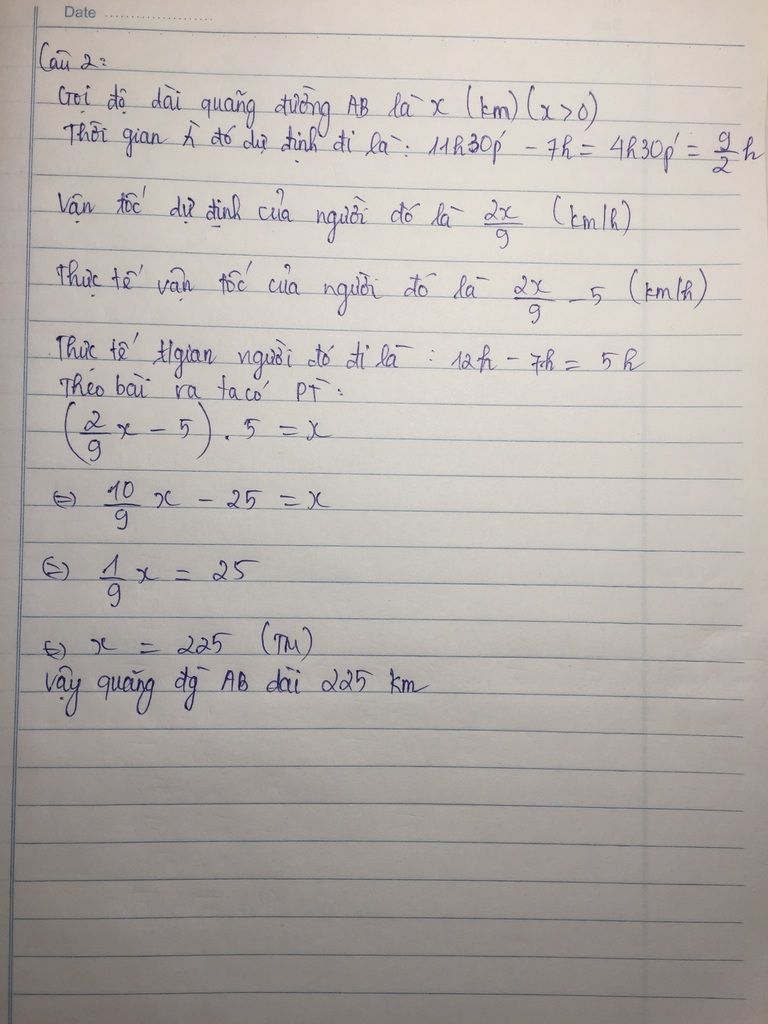 Date
Câu 2:
Gọi độ dài quãng đường AB là x (km) (x>0)
Thời gian đó dự định đi là: 11h30p' - 7h = 4h30p' = 9/2 h
Vận tốc dự định của người đó là 2x/9 (km/h)
Thực tế vận tốc của người đó là 2x/9 - 5 (km/h)
Thực tế tgian người đó đi là : 12h - 7h = 5h
Theo bài ra ta có PT:
(2/9 x - 5) . 5 = x
⇔ 10/9 x - 25 = x
⇔ 1/9 x = 25
⇔ x = 225 (TM)
Vậy quãng đg AB dài 225 km